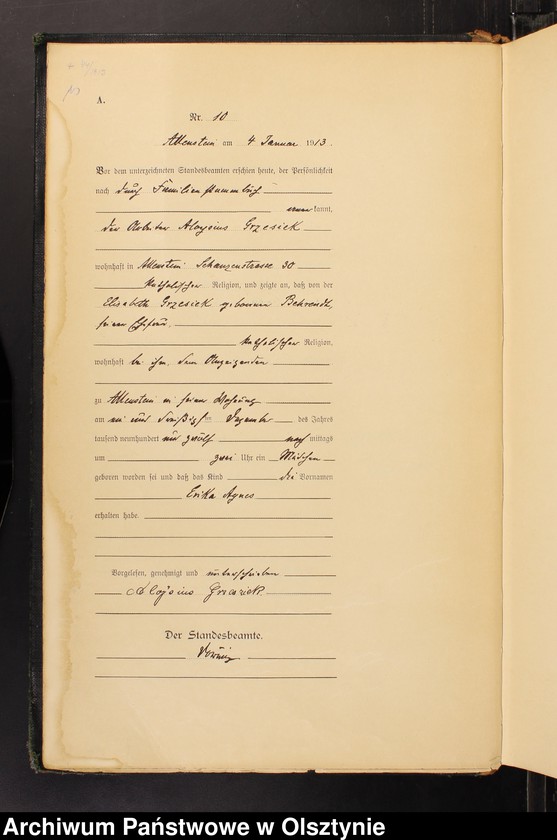 A.
Nr. 10
Allenstein am 4 Januar 1913.
Vor dem unterzeichneten Standesbeamten erschien heute, der Persönlichkeit
nach durch Familienstammbuch
kannt,
der Arbeiter Aloysius Grzesiek
wohnhaft in Allenstein Schanzenstrasse 30
katholischer Religion, und zeigte an, daß von der
Elisabeth Grzesiek geborenen Behrendt,
seiner Ehefrau,
katholischer Religion,
wohnhaft bei ihm, dem Anzeigenden
zu Allenstein in seiner Wohnung
am ein und dreißigsten Dezember des Jahres
tausend neunhundert und zwölf nachmittags
um zwei Uhr ein Mädchen
geboren worden sei und daß das Kind die Vornamen
Erika Agnes
erhalten habe.
Vorgelesen, genehmigt und unterschrieben
Aloysius Grzesiek
Der Standesbeamte.
Archiwum Państwowe w Olsztynie